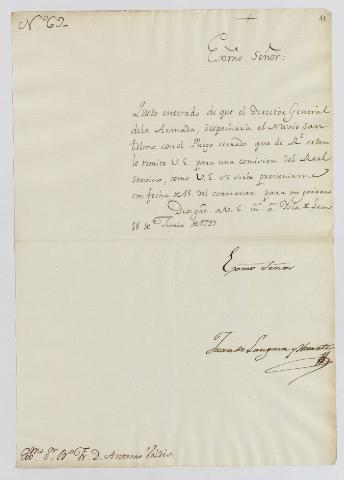 N.º 62
11
Exmo. Señor:
Quedo enterado de que el Director General
dela Armada, despacharia el Navio San
Telmo con el Pliego cerrado que de Rl. orden
le remite V.E. para una comision del Real
Servicio, como V.E. se sirve prevenirme
con fecha de 15. del corriente para mi govierno
Dios gue. a V.E. ms. as.
18 de Junio de 1793
Exmo. Señor
Juan de Langara y Huarte
Exmo. Sr. Bo. Fr. D. Antonio Valdés.